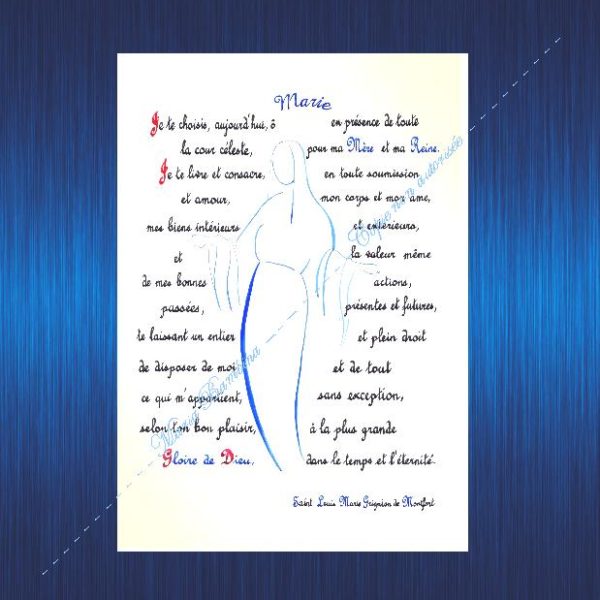 Marie
Je te choisis, aujourd'hui, ô en présence de toute
la cour céleste, pour ma Mère et ma Reine.
Je te livre et consacre, en toute soumission
et amour, mon corps et mon âme,
mes biens intérieurs et extérieurs,
et la valeur même
de mes bonnes actions,
passées, présentes et futures,
te laissant un entier et plein droit
de disposer de moi et de tout
ce qui m'appartient, sans exception,
selon ton bon plaisir, à la plus grande
Gloire de Dieu, dans le temps et l'éternité.
Saint Louis Marie Grignion de Montfort
Copie non autorisée